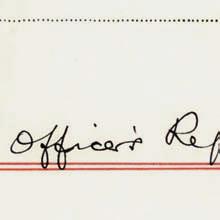 Officer's Rep